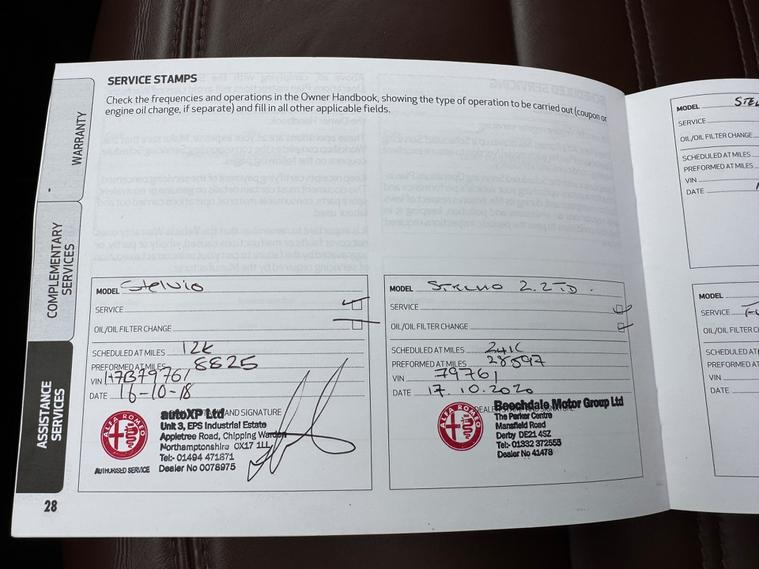 SERVICE STAMPS
Check the frequencies and operations in the Owner Handbook, showing the type of operation to be carried out (coupon or
engine oil change, if separate) and fill in all other applicable fields.
WARRANTY
COMPLEMENTARY
SERVICES
ASSISTANCE
SERVICES
MODEL Stelvio
SERVICE
OIL/OIL FILTER CHANGE
SCHEDULED AT MILES 12K
PREFORMED AT MILES 8825
VIN
DATE 16-10-18
AND SIGNATURE
ALFA ROMEO
AUTHORISED SERVICE
autoXP Ltd
Unit 3, EPS Industrial Estate
Appletree Road, Chipping Warden
Northamptonshire OX17 1LL
Tel:- 01494 471871
Dealer No 0078975
MODEL STELVIO 2.2TD.
SERVICE
OIL/OIL FILTER CHANGE
SCHEDULED AT MILES 24K
PREFORMED AT MILES 28597
VIN 79761
DATE 17.10.2020
ALFA ROMEO
Beechdale Motor Group Ltd
The Parker Centre
Mansfield Road
Derby DE21 4SZ
Tel:- 01332 372555
Dealer No 41478
MODEL
SERVICE
OIL/OIL FILTER CHANGE
SCHEDULED AT MILES
PREFORMED AT MILES
VIN
DATE
MODEL
SERVICE
OIL/OIL FILTER C
SCHEDULED AT
PREFORMED AT
VIN
DATE
28